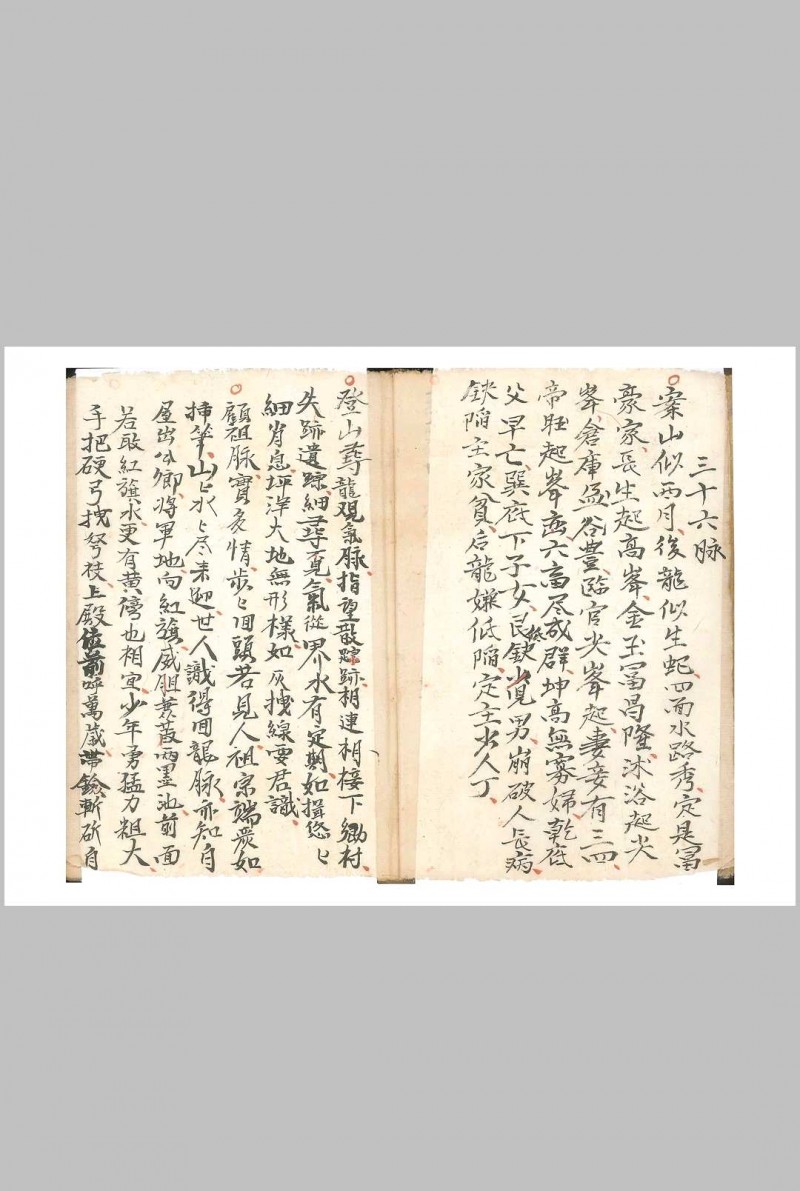 三十六脉
案山似両月、後龍似生蛇、四面水路秀、定是冨
豪家、長生起高峯、金玉冨昌隆、沐浴起尖
峯、倉庫盈谷豊、臨官尖峯起、妻妾有三四、
帝旺起峯峦、六畜尽成群、坤高無寡婦、乾底
父早亡、巽底下子女、艮缺少児男、崩破人長病、
缺陥主家貧、后龍嫌低陥、定主少人丁、
登山尋龍観氣脉、指望散踪跡、相連相接下鄉村、
失跡遺踪、細尋覔氣、從界水有定期、如揖悠〻
細肖息、坪洋大地無形樣、如灰拽線要君識
顧祖脉、實多情、步〻囬頭若見人、祖宗端衆如
挿筆、山〻水〻尽来迎、世人識得囬龍脉、亦知自
屋出公卿、將軍地向紅旗、威胆両墨池、前面
若敢紅旗水、更有黄傍也相宜、少年勇猛力粗大、
手把硬弓拽弩枝、上殿位前呼萬歲、帶斬斫自